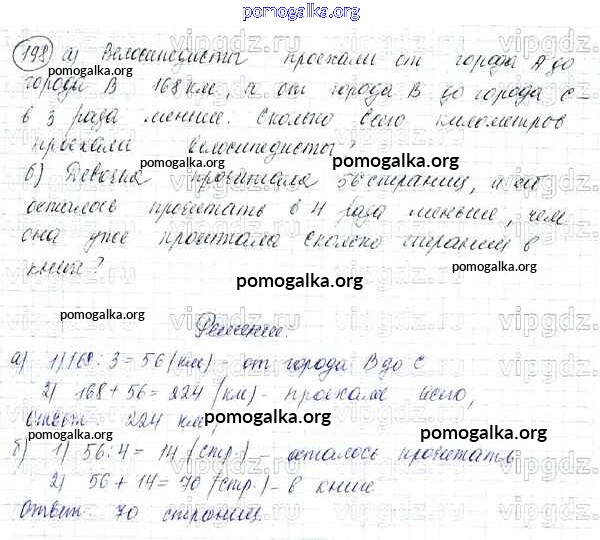 pomogalka.org
198 а) Велосипедисты проехали от города А до
города В 168 км, а от города В до города С –
в 3 раза меньше. Сколько всего километров
проехали велосипедисты?
б) Девочка прочитала 56 страниц, и ей
осталось прочитать в 4 раза меньше, чем
она уже прочитала. Сколько страниц в
книге?
Решение.
а) 1) 168 : 3 = 56 (км) – от города В до С
2) 168 + 56 = 224 (км) – проехали всего,
Ответ: 224 км,
б) 1) 56 : 4 = 14 (стр.) – осталось прочитать
2) 56 + 14 = 70 (стр.) – в книге
Ответ: 70 страниц.
pomogalka.org
pomogalka.org
pomogalka.org
pomogalka.org
pomogalka.org
pomogalka.org
pomogalka.org
pomogalka.org
vipgdz.